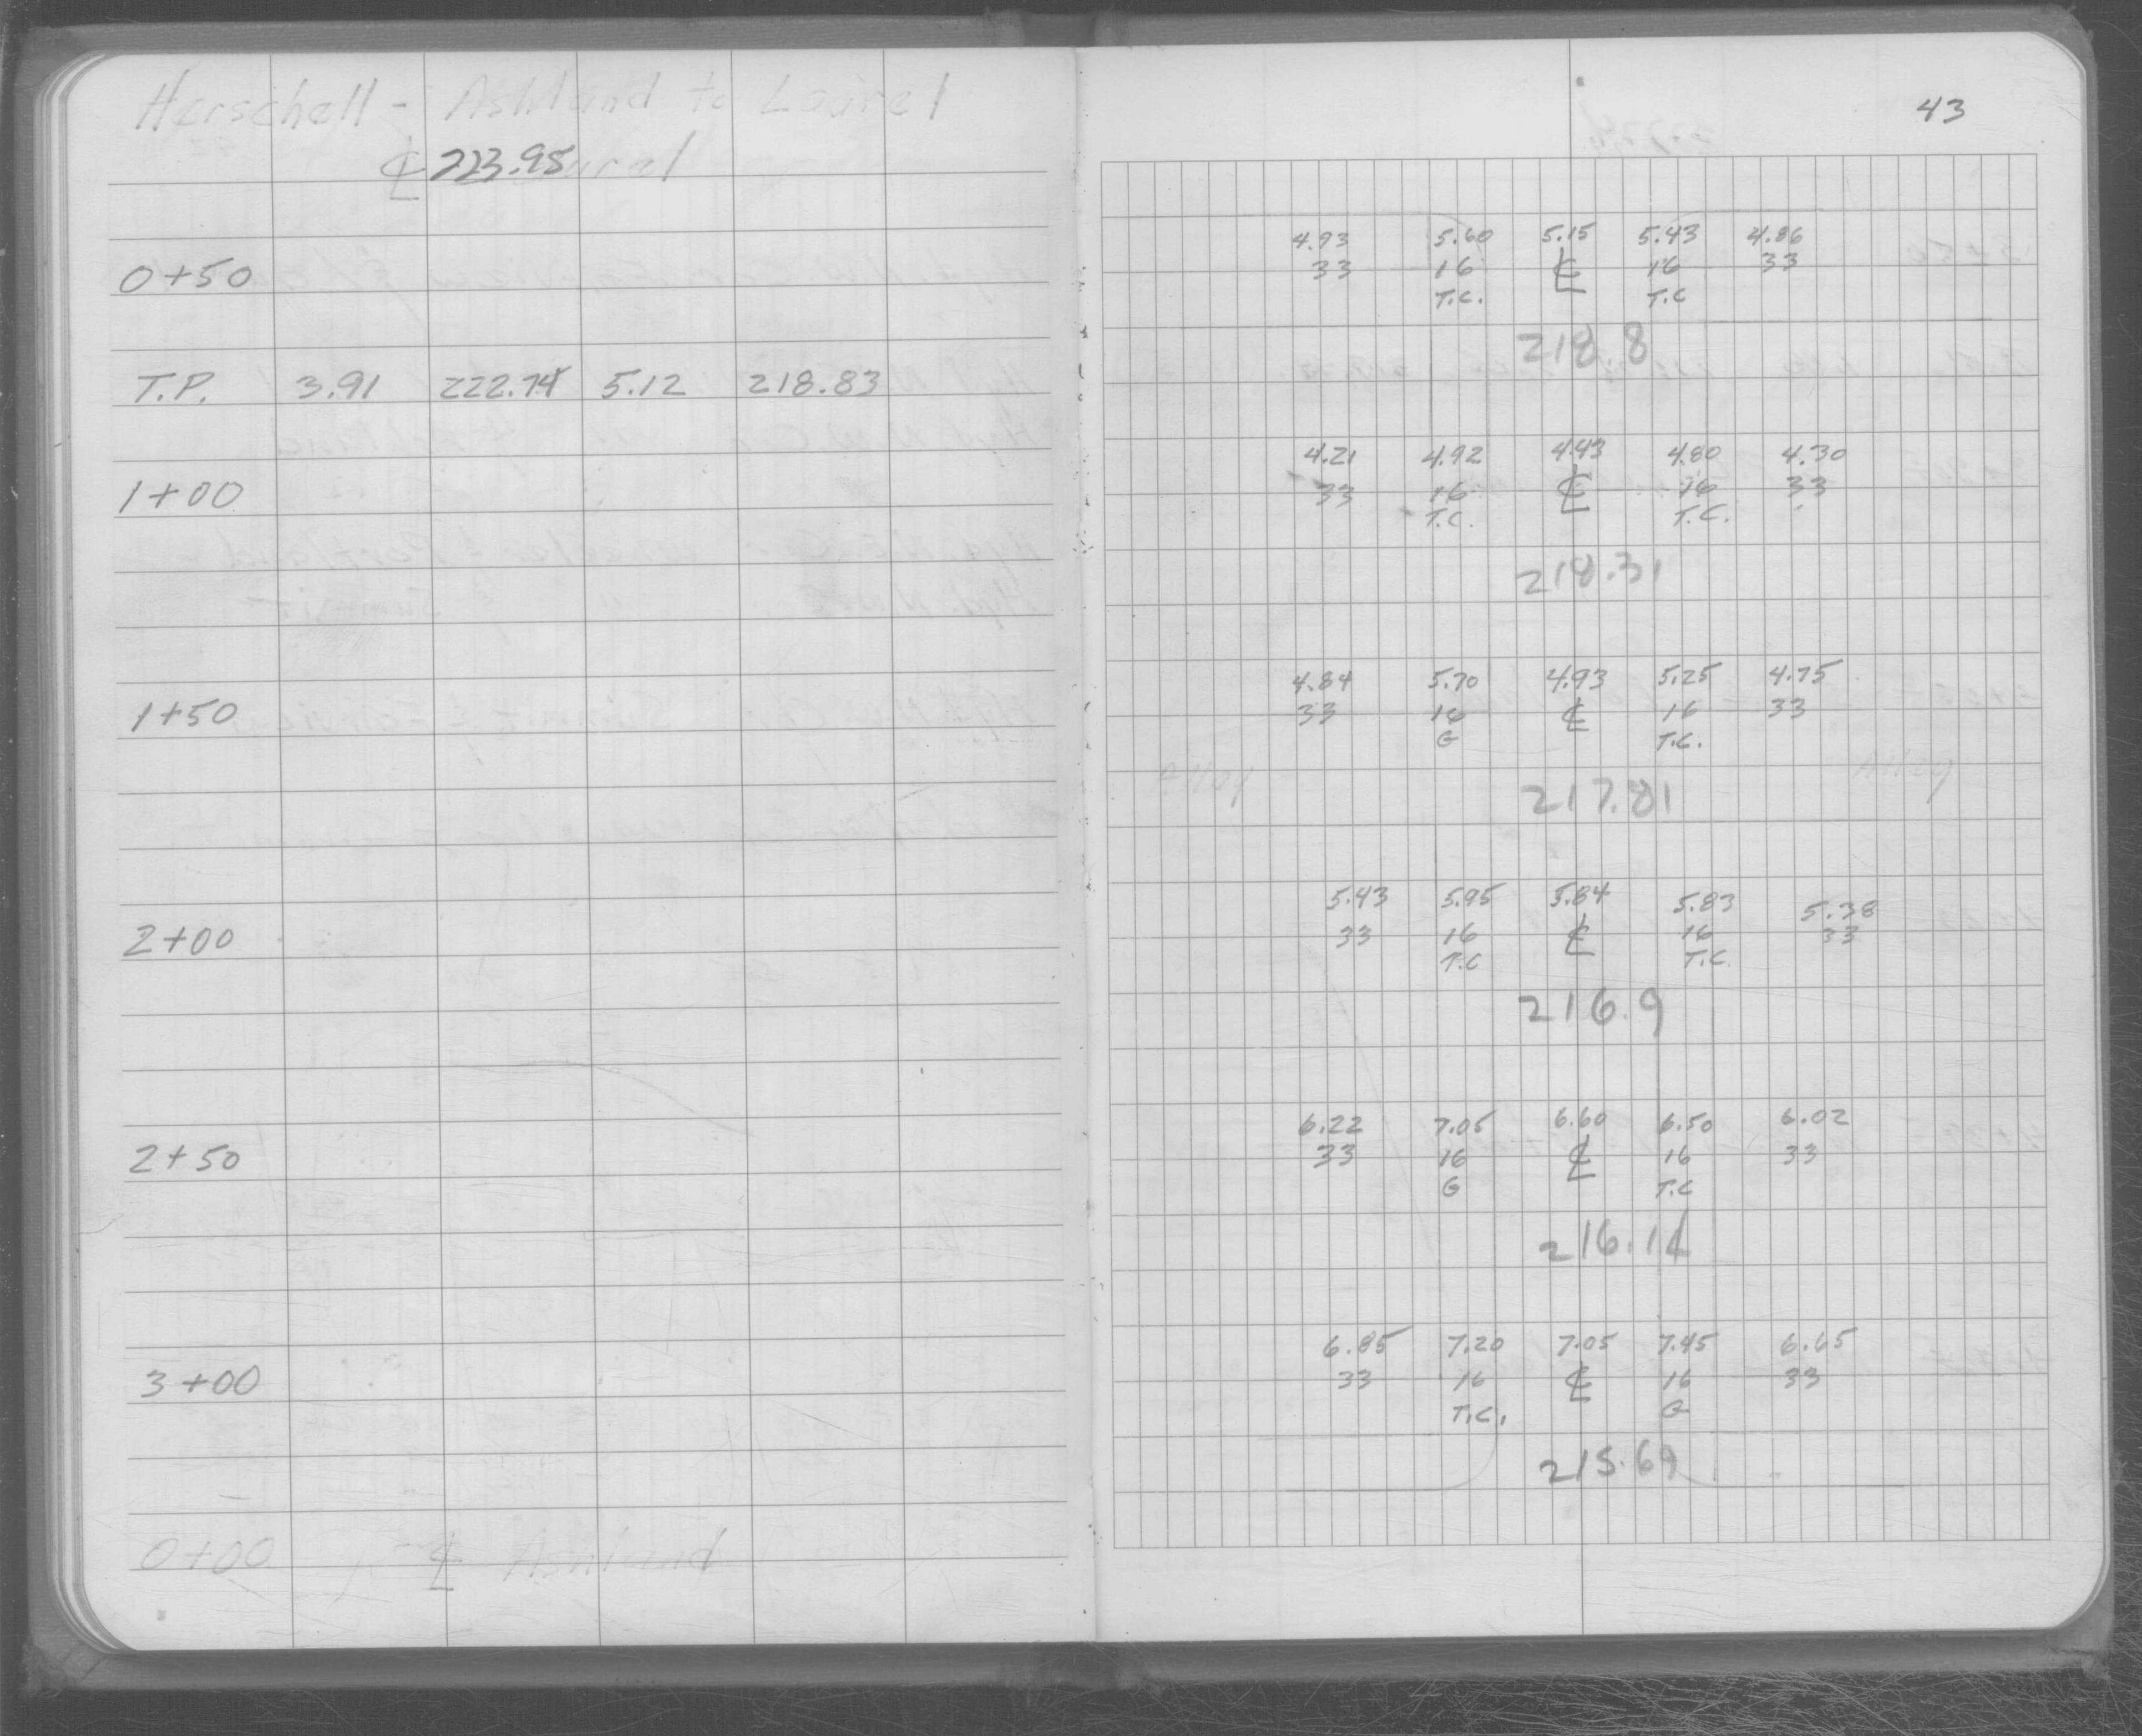 Herschell - Ashland to Laurel
43
℄ 223.95 Laurel
4.93 5.60 5.15 5.43 4.86
0+50 33 16 ℄ 16 33
T.C. T.C
218.8
T.P. 3.91 222.74 5.12 218.83
4.21 4.92 4.43 4.80 4.30
1+00 33 16 ℄ 16 33
T.C. T.C.
218.31
4.84 5.70 4.93 5.25 4.75
1+50 33 16 ℄ 16 33
G T.C.
Alley 217.81 Alley
5.43 5.95 5.84 5.83 5.38
2+00 33 16 ℄ 16 33
T.C T.C.
216.9
6.22 7.05 6.60 6.50 6.02
2+50 33 16 ℄ 16 33
G T.C
216.14
6.85 7.20 7.05 7.45 6.65
3+00 33 16 ℄ 16 33
T.C. G
215.69
0+00 ℄ Ashland